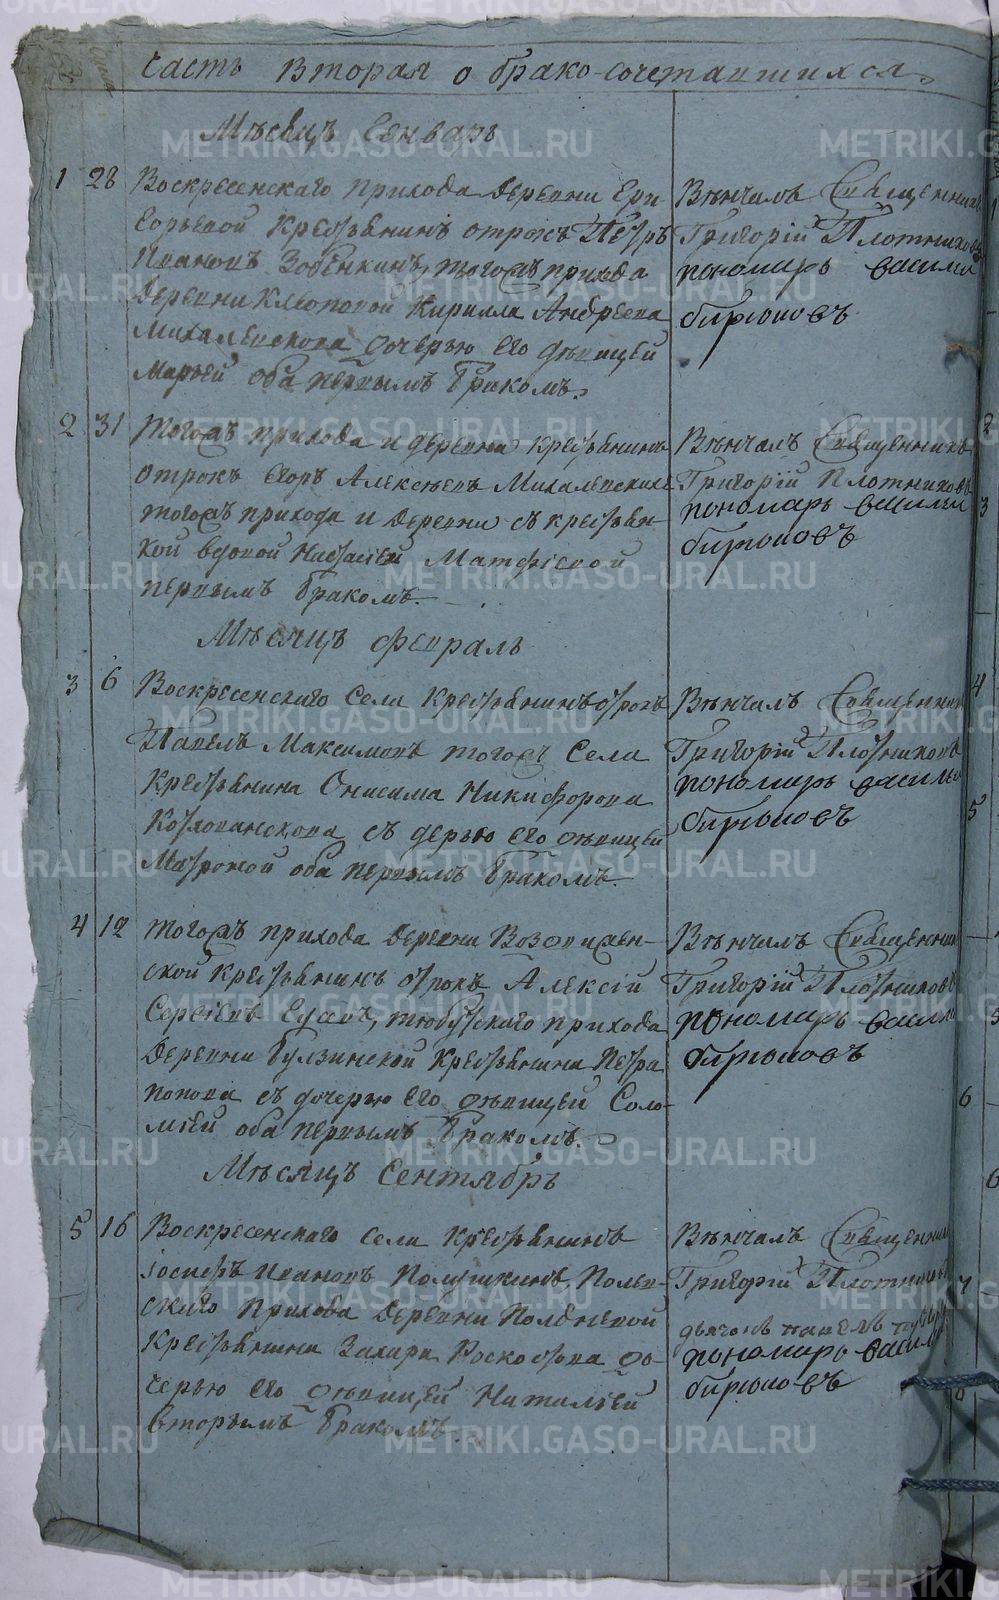 Часть Вторая о брако-сочетавшихся
Мѣсяцъ Генварь
1 28 Воскресенскаго прихода деревни Гри
горьевой крестьянинъ отрокъ Петръ
Ивановъ Зобенкинъ, тогожъ прихода
деревни Клюповой Кирилла Андреева
Михалевскова дочерью его дѣвицей
Марьей оба первымъ бракомъ.
Вѣнчалъ Священникъ
Григорій Плотниковъ
пономарь василий
бирюковъ
2 31 Тогожъ прихода и деревни крестьянинъ
отрокъ Егоръ Алексѣевъ Михалевских
тогожъ прихода и деревни съ крестьян-
кой вдовой Настасіей Матфіевой
первымъ бракомъ.
Вѣнчалъ Священникъ
Григорій Плотниковъ
пономарь василий
бирюковъ
Мѣсяцъ февраль
3 6 Воскресенскаго Села Крестьянинъ отрокъ
Павелъ Максимовъ тогожъ Села
Крестьянина Онисима Никифорова
съ дерью его дѣвицей
Матроной оба первымъ бракомъ.
Вѣнчалъ Священникъ
Григорій Плотниковъ
пономарь василий
бирюковъ
4 12 Тогожъ прихода деревни Возвижен-
ской крестьянинъ отрокъ Алексій
Сергѣевъ прихода
деревни Булзинской Крестьянина Петра
Попова съ дочерью его дѣвицей Соло-
міей оба первымъ бракомъ.
Вѣнчалъ Священникъ
Григорій Плотниковъ
пономарь василий
бирюковъ
Мѣсяцъ Сентябрь
5 16 Воскресенскаго села Крестьянинъ
Іосифъ Ивановъ Полушкинъ, Полев-
скаго Прихода деревни Полдневой
Крестьянина Захара до-
черью его дѣвицей Наталіей
вторымъ бракомъ.
Вѣнчалъ Священникъ
Григорій Плотниковъ
дьячокъ павелъ
пономарь василий
бирюковъ